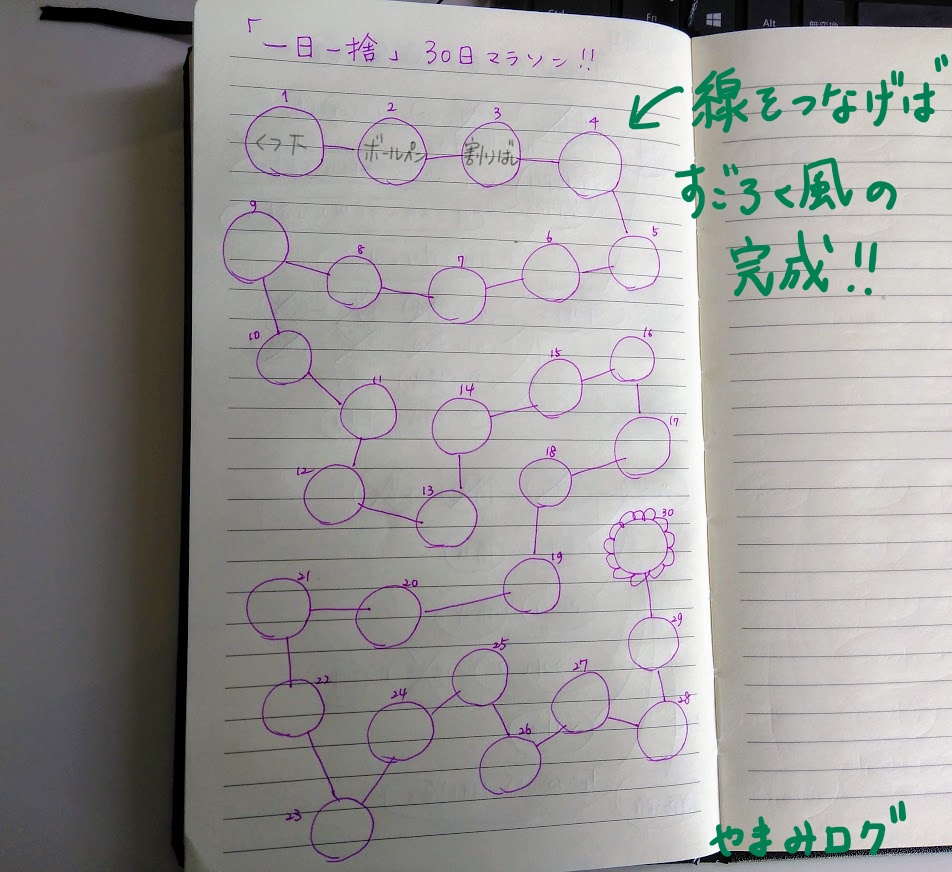 Ctrl
Fn
Alt
無変換
「一日一捨」30日マラソン!!
1
くつ下
2
ボールペン
3
割りばし
4
5
6
7
8
9
10
11
12
13
14
15
16
17
18
19
20
21
22
23
24
25
26
27
28
29
30
←線をつなげば
すごろく風の
完成!!
やまみログ